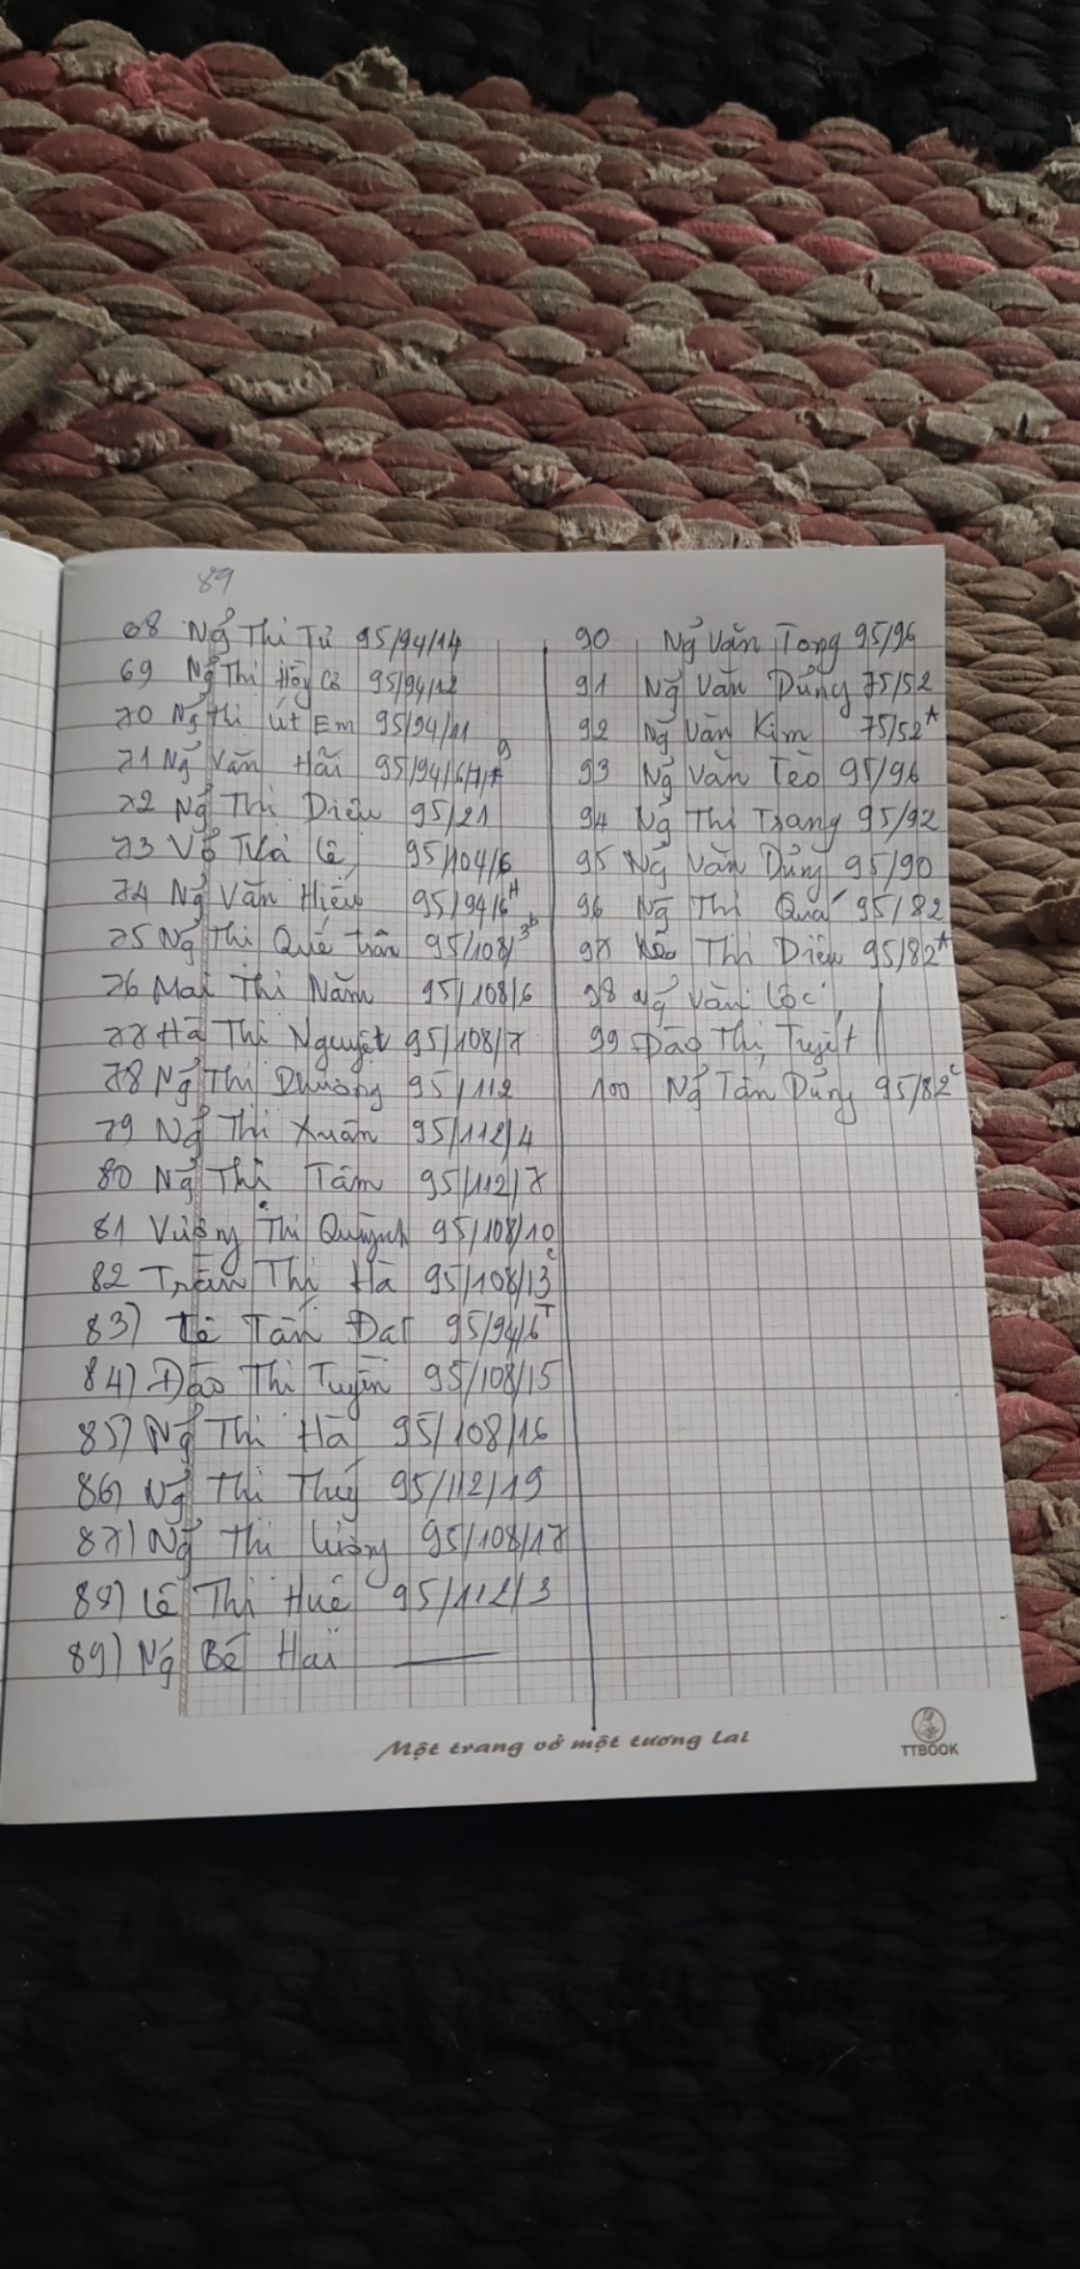 89
68 Ng̉ Thị Tư 95/94/14
69 Ng̉ Thị Hồng Cả 95/94/12
70 Ng̉ Thị Út Em 95/94/11
71 Ng̉ Văn Hải 95/94/6
72 Ng̉ Thị Diệu 95/21
73 Võ Trà Lê 95/104/6
74 Ng̉ Văn Hiếu 95/94/6H
75 Ng̉ Thị Quế Trân 95/108/3b
76 Mai Thị Năm 95/108/6
77 Hà Thị Nguyệt 95/108/7
78 Ng̉ Thị Phương 95/112
79 Ng̉ Thị Xuân 95/112/4
80 Ng̉ Thị Tâm 95/112/7
81 Vương Thị Quỳnh 95/108/10
82 Trần Thị Hà 95/108/13c
83) Lê Tấn Đạt 95/94/6T
84) Đào Thị Tuyền 95/108/15
85) Ng̉ Thị Hà 95/108/16
86) Ng̉ Thị Thúy 95/112/19
87) Ng̉ Thị Lương 95/108/17
88) Lê Thị Huê 95/112/3
89) Ng̉ Bé Hai
90 Ng̉ Văn Tong 95/96
91 Ng̉ Văn Dũng 75/52
92 Ng̉ Văn Kim 75/52A
93 Ng̉ Văn Tèo 95/96
94 Ng̉ Thị Trang 95/92
95 Ng̉ Văn Dũng 95/90
96 Ng̉ Thị Quá 95/82
97 Thị Diệu 95/82A
98 Ng̉ Văn Lộc
99 Đào Thị Tuyết
100 Ng̉ Tấn Dũng 95/82c
Một trang vở một tương lai
TTBOOK